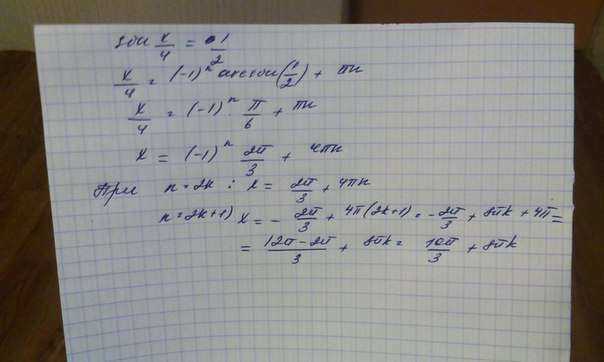 sin x/4 = 1/2
x/4 = (-1)^n arcsin(1/2) + πn
x/4 = (-1)^n · π/6 + πn
x = (-1)^n 2π/3 + 4πn
При n=2k : x = 2π/3 + 4πn
n=2k+1) x = - 2π/3 + 4π(2k+1) = - 2π/3 + 8πk + 4π =
= 12π-2π/3 + 8πk = 10π/3 + 8πk